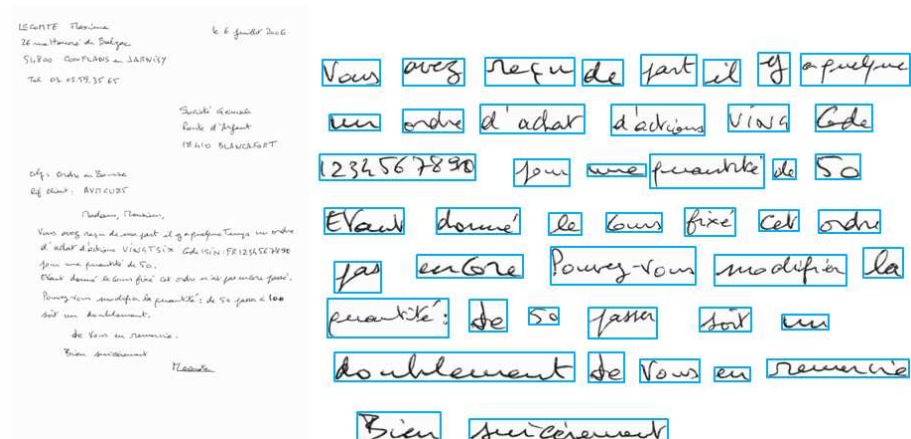 LECOMTE Maxime
le 6 juillet 2006
26 rue Honoré de Balzac
54800 CONFLANS en JARNISY
Tél 03 05.59.35.65
Société Générale
Route d'Argent
18410 BLANCAFORT
Obj: Ordre en Bourse
Réf client: AVTCU25
Madame, Monsieur,
Vous avez reçu de ma part il y a quelque Temps un ordre
d'achat d'actions VINGT SIX Code ISIN: FR1234567890
pour une quantité de 50.
Etant donné le cours fixé cet ordre n'est pas encore passé.
Pouvez-vous modifier la quantité: de 50 passer à 100
soit un doublement.
de Vous en remercie.
Bien sincèrement
Vous avez reçu de part il y a quelque
un ordre d'achat d'actions VING Code
1234567890 pour une quantité de 50
Etant donné le cours fixé cet ordre
pas encore Pouvez-vous modifier la
quantité: de 50 passer soit un
doublement de Vous en remercie
Bien sincèrement